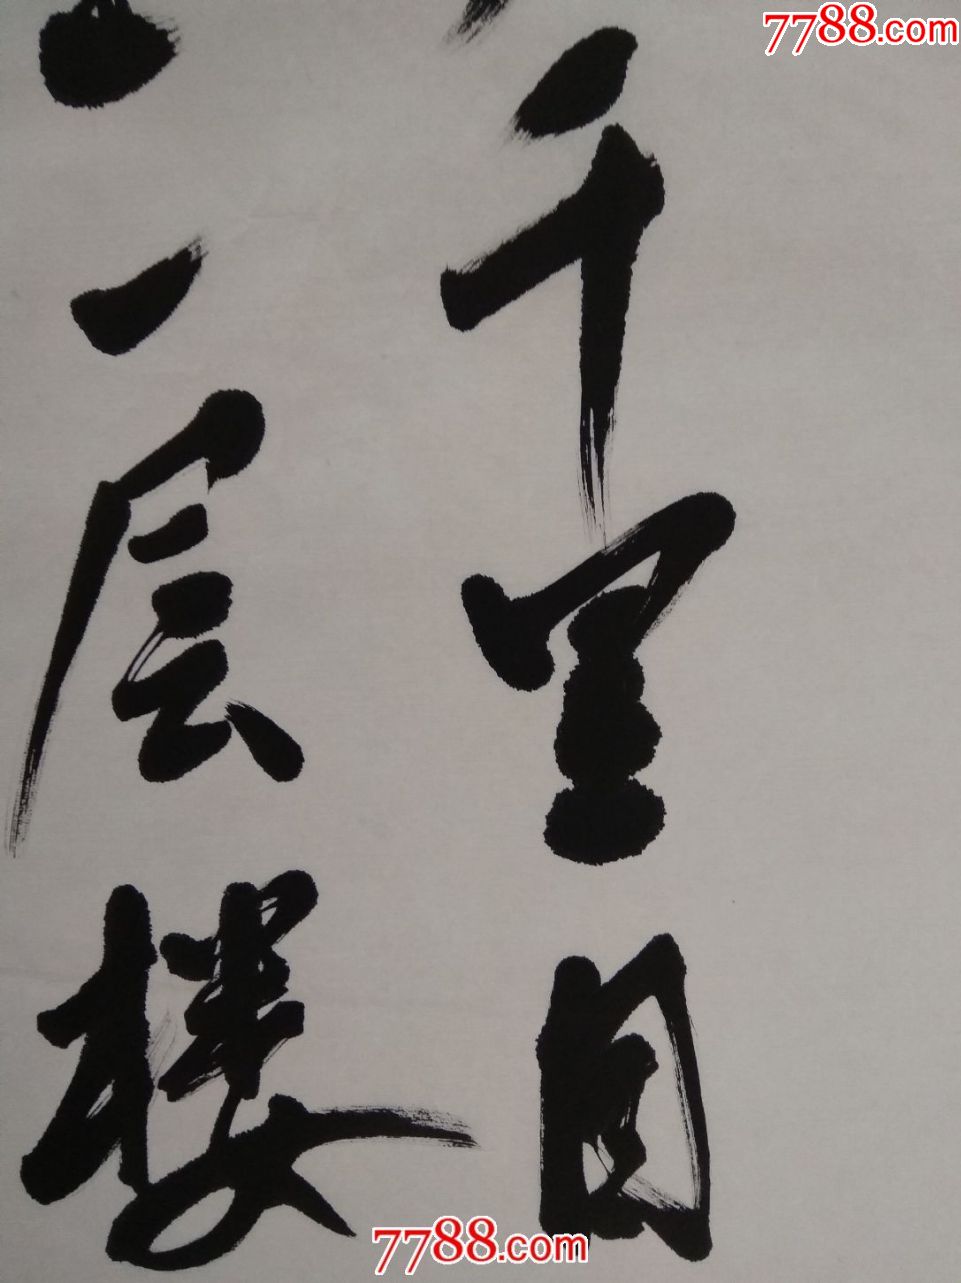 7788.com
千里目
一层楼
7788.com